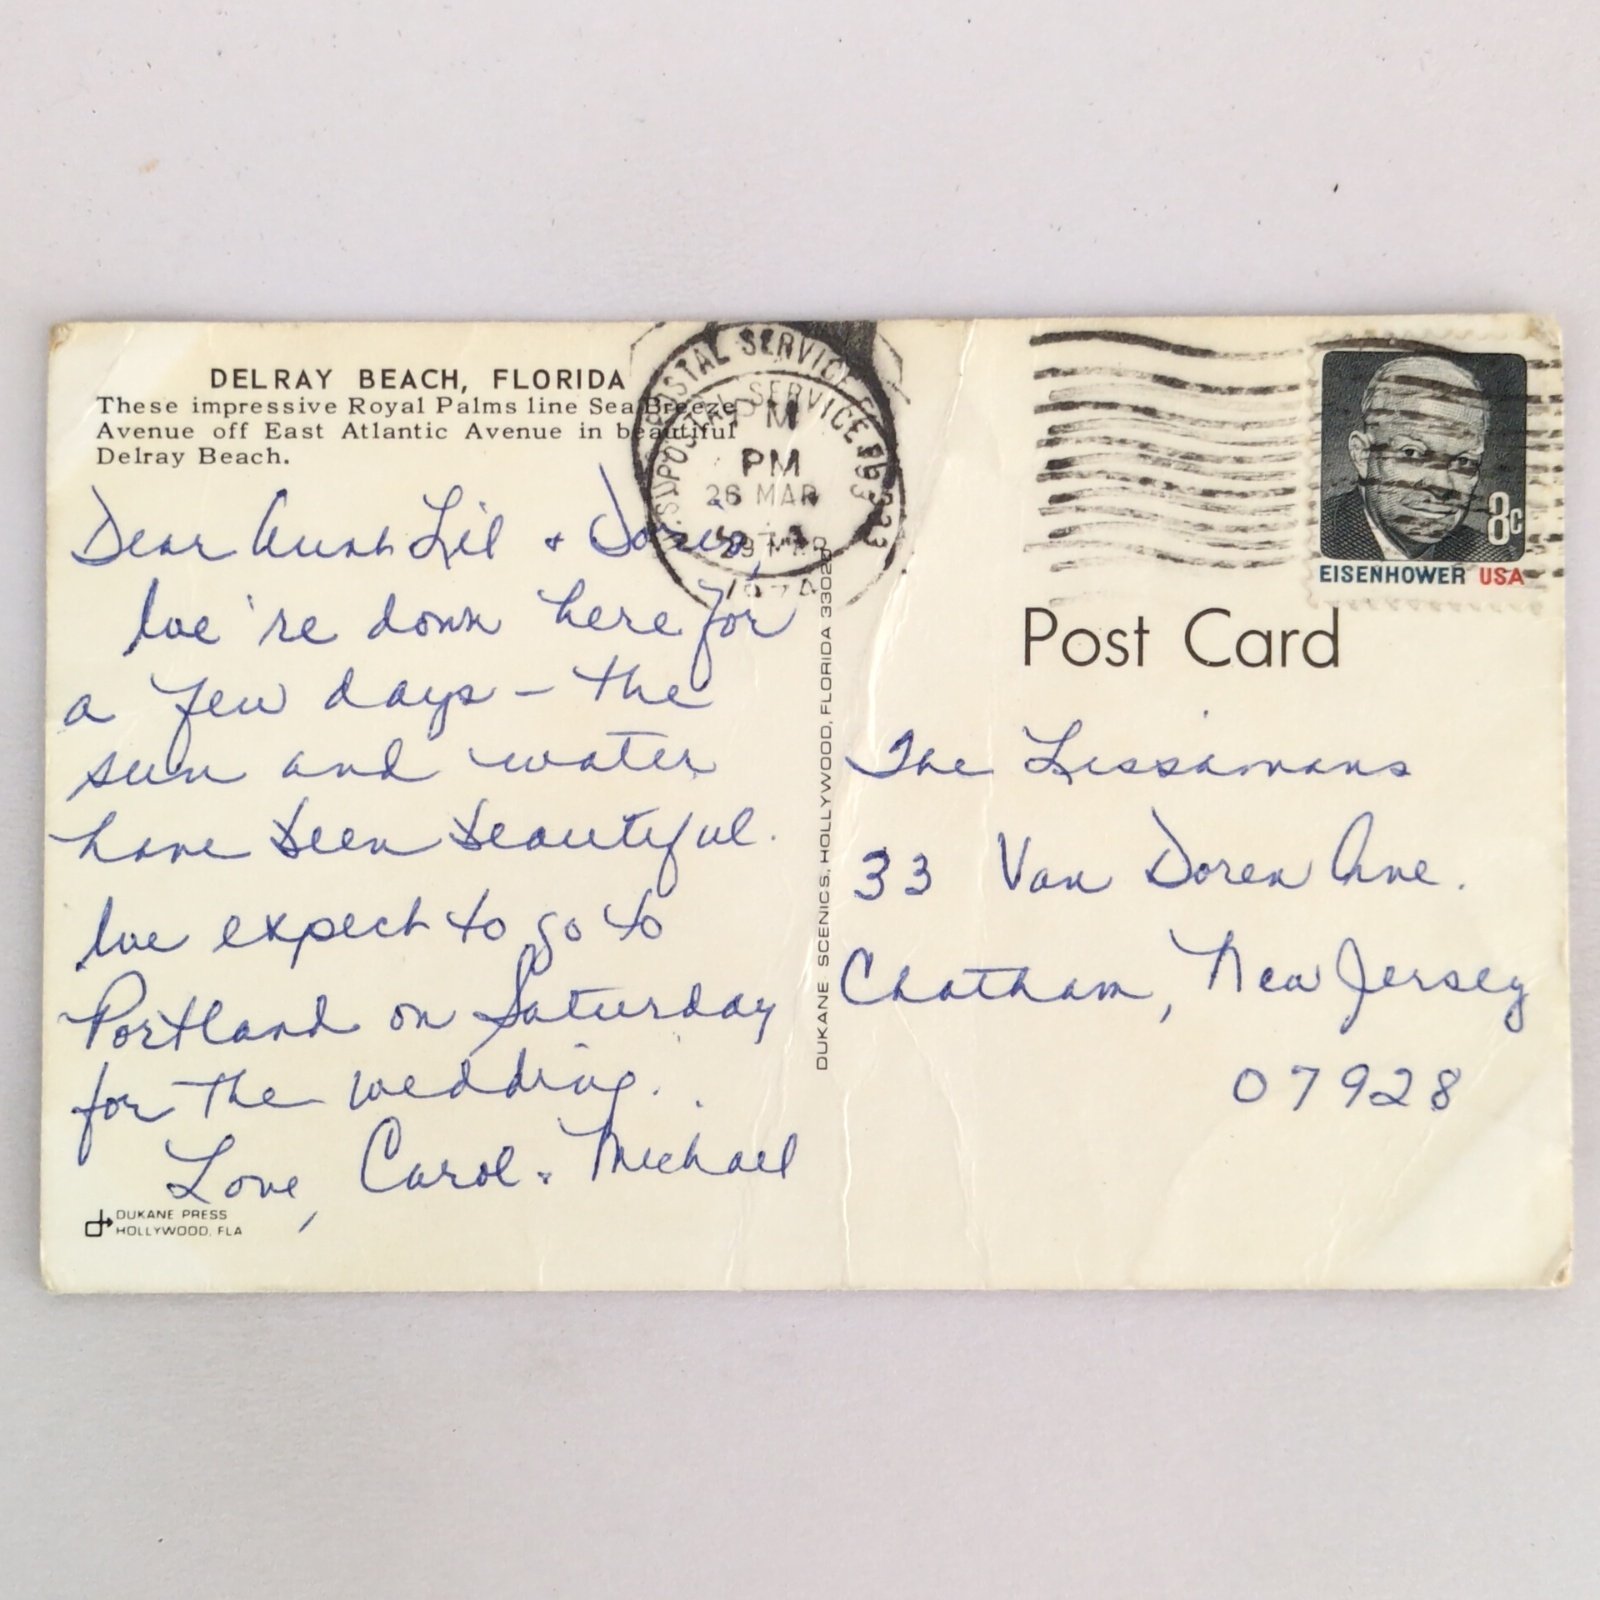 DELRAY BEACH, FLORIDA
These impressive Royal Palms line Sea Breeze
Avenue off East Atlantic Avenue in beautiful
Delray Beach.
Dear Aunt Lil + Doris,
We're down here for
a few days – the
sun and water
have been beautiful.
We expect to go to
Portland on Saturday
for the wedding.
Love, Carol + Michael
DUKANE PRESS
HOLLYWOOD, FLA
DUKANE SCENICS, HOLLYWOOD, FLORIDA
POSTAL SERVICE
POSTAL SERVICE
PM
PM
26 MAR
29 MAR
1974
8c
EISENHOWER USA
Post Card
The Lissamans
33 Van Doren Ave.
Chatham, New Jersey
07928